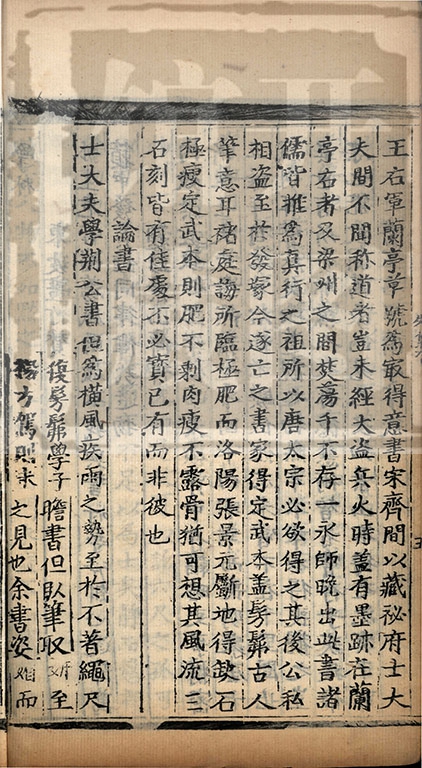 王右軍蘭亭草號爲最得意書宋齊間以藏秘府士大
夫間不聞称道者豈未經大盜兵火時蓋有墨跡在蘭
亭右者及梁州之間焚蕩千不存一永師晚出此書諸
儒皆推爲真行之祖所以唐太宗必欲得之其後公私
相盜至於發冢今遂亡之書家得定武本蓋髣髴古人
筆意耳褚庭誨所臨極肥而洛陽張景元斸地得缺石
極瘦定武本則肥不剩肉瘦不露骨猶可想其風流三
石刻皆有佳處不必寶已有而非彼也
論書
士大夫學荆公書但爲横風疾雨之勢至於不著繩尺
髣髴學子瞻書但臥筆取至
楊方駕則未之見也余書姿而